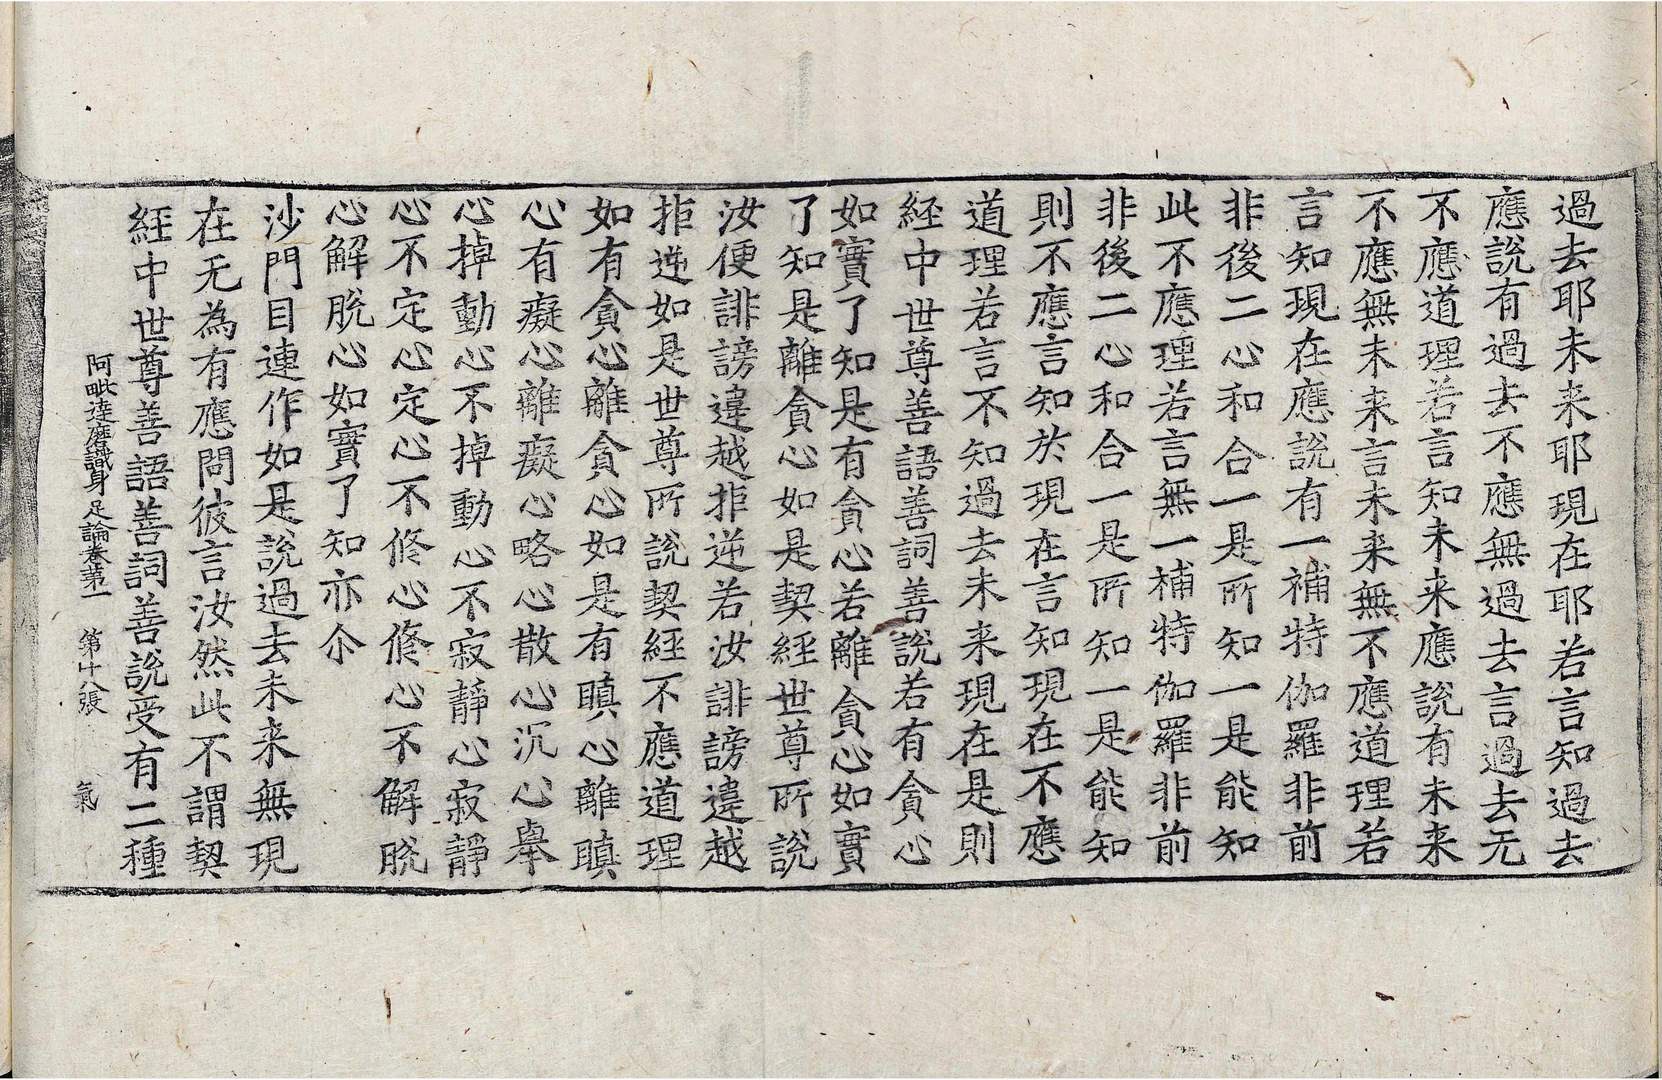 過去耶未来耶現在耶若言知過去
應說有過去不應無過去言過去无
不應道理若言知未来應說有未来
不應無未来言未来無不應道理若
言知現在應說有一補特伽羅非前
非後二心和合一是所知一是能知
此不應理若言無一補特伽羅非前
非後二心和合一是所知一是能知
則不應言知於現在言知現在不應
道理若言不知過去未来現在是則
経中世尊善語善詞善說若有貪心
如實了知是有貪心若離貪心如實
了知是離貪心如是契経世尊所說
汝便誹謗違越拒逆若汝誹謗違越
拒逆如是世尊所說契経不應道理
如有貪心離貪心如是有瞋心離瞋
心有癡心離癡心略心散心沉心舉
心掉動心不掉動心不寂静心寂静
心不定心定心不修心修心不解脫
心解脫心如實了知亦尒
沙門目連作如是說過去未来無現
在无為有應問彼言汝然此不謂契
経中世尊善語善詞善說受有二種
阿毗達磨識身足論卷第一　第十八張　氣